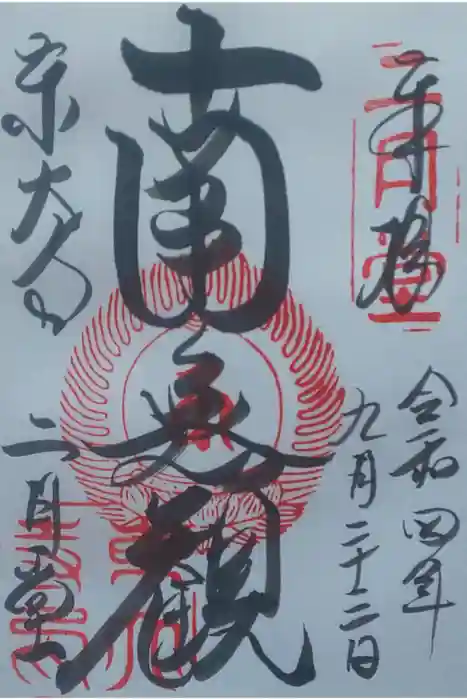 奉拝
令和四年
九月二十二日
南無観
東大寺
二月堂
二月堂